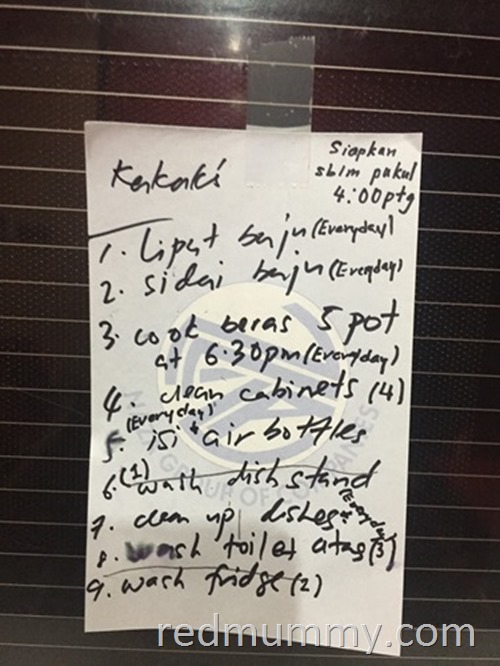 Kakaki
Siapkan
sblm pukul
4:00ptg
1. lipat baju (Everyday)
2. sidai baju (Everyday)
3. cook beras 5 pot
at 6.30pm (Everyday)
4. clean cabinets (4)
(Everyday)
5. isi air bottles
6. (1) wash dish stand
7. clean up dishes (Everyday)
8. wash toilet atas (3)
9. wash fridge (2)
GROUP OF COMPANIES
redmummy.com